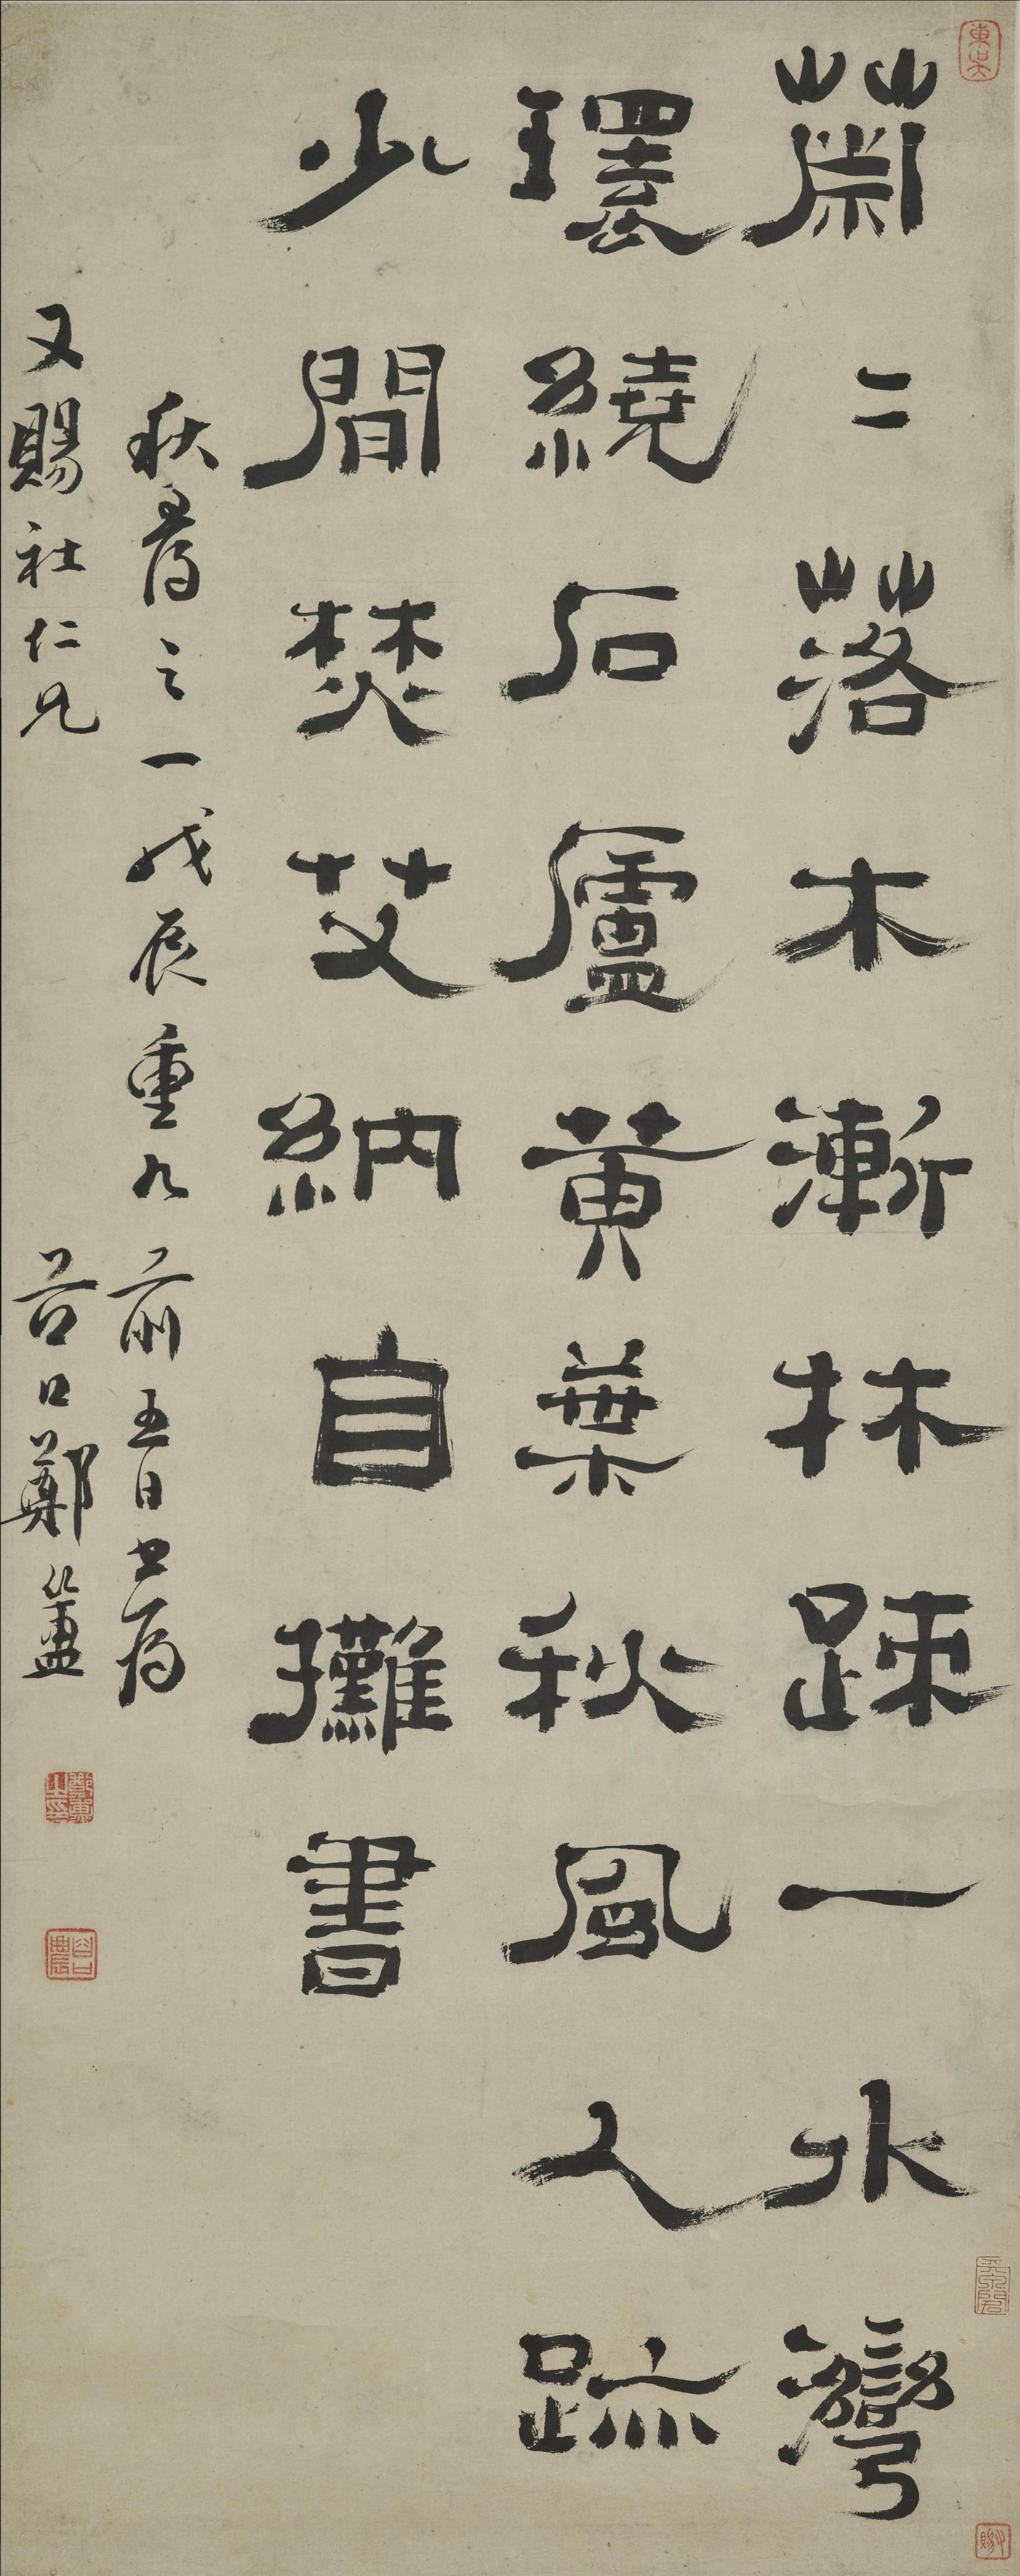 蕭二落木漸林踈一水灣
環繞石廬黃葉秋風人跡
少閒焚艾納自攤書
秋居之一戊辰重九前五日書為
又賜社仁兄 谷口鄭簠
鄭簠之印
谷口農